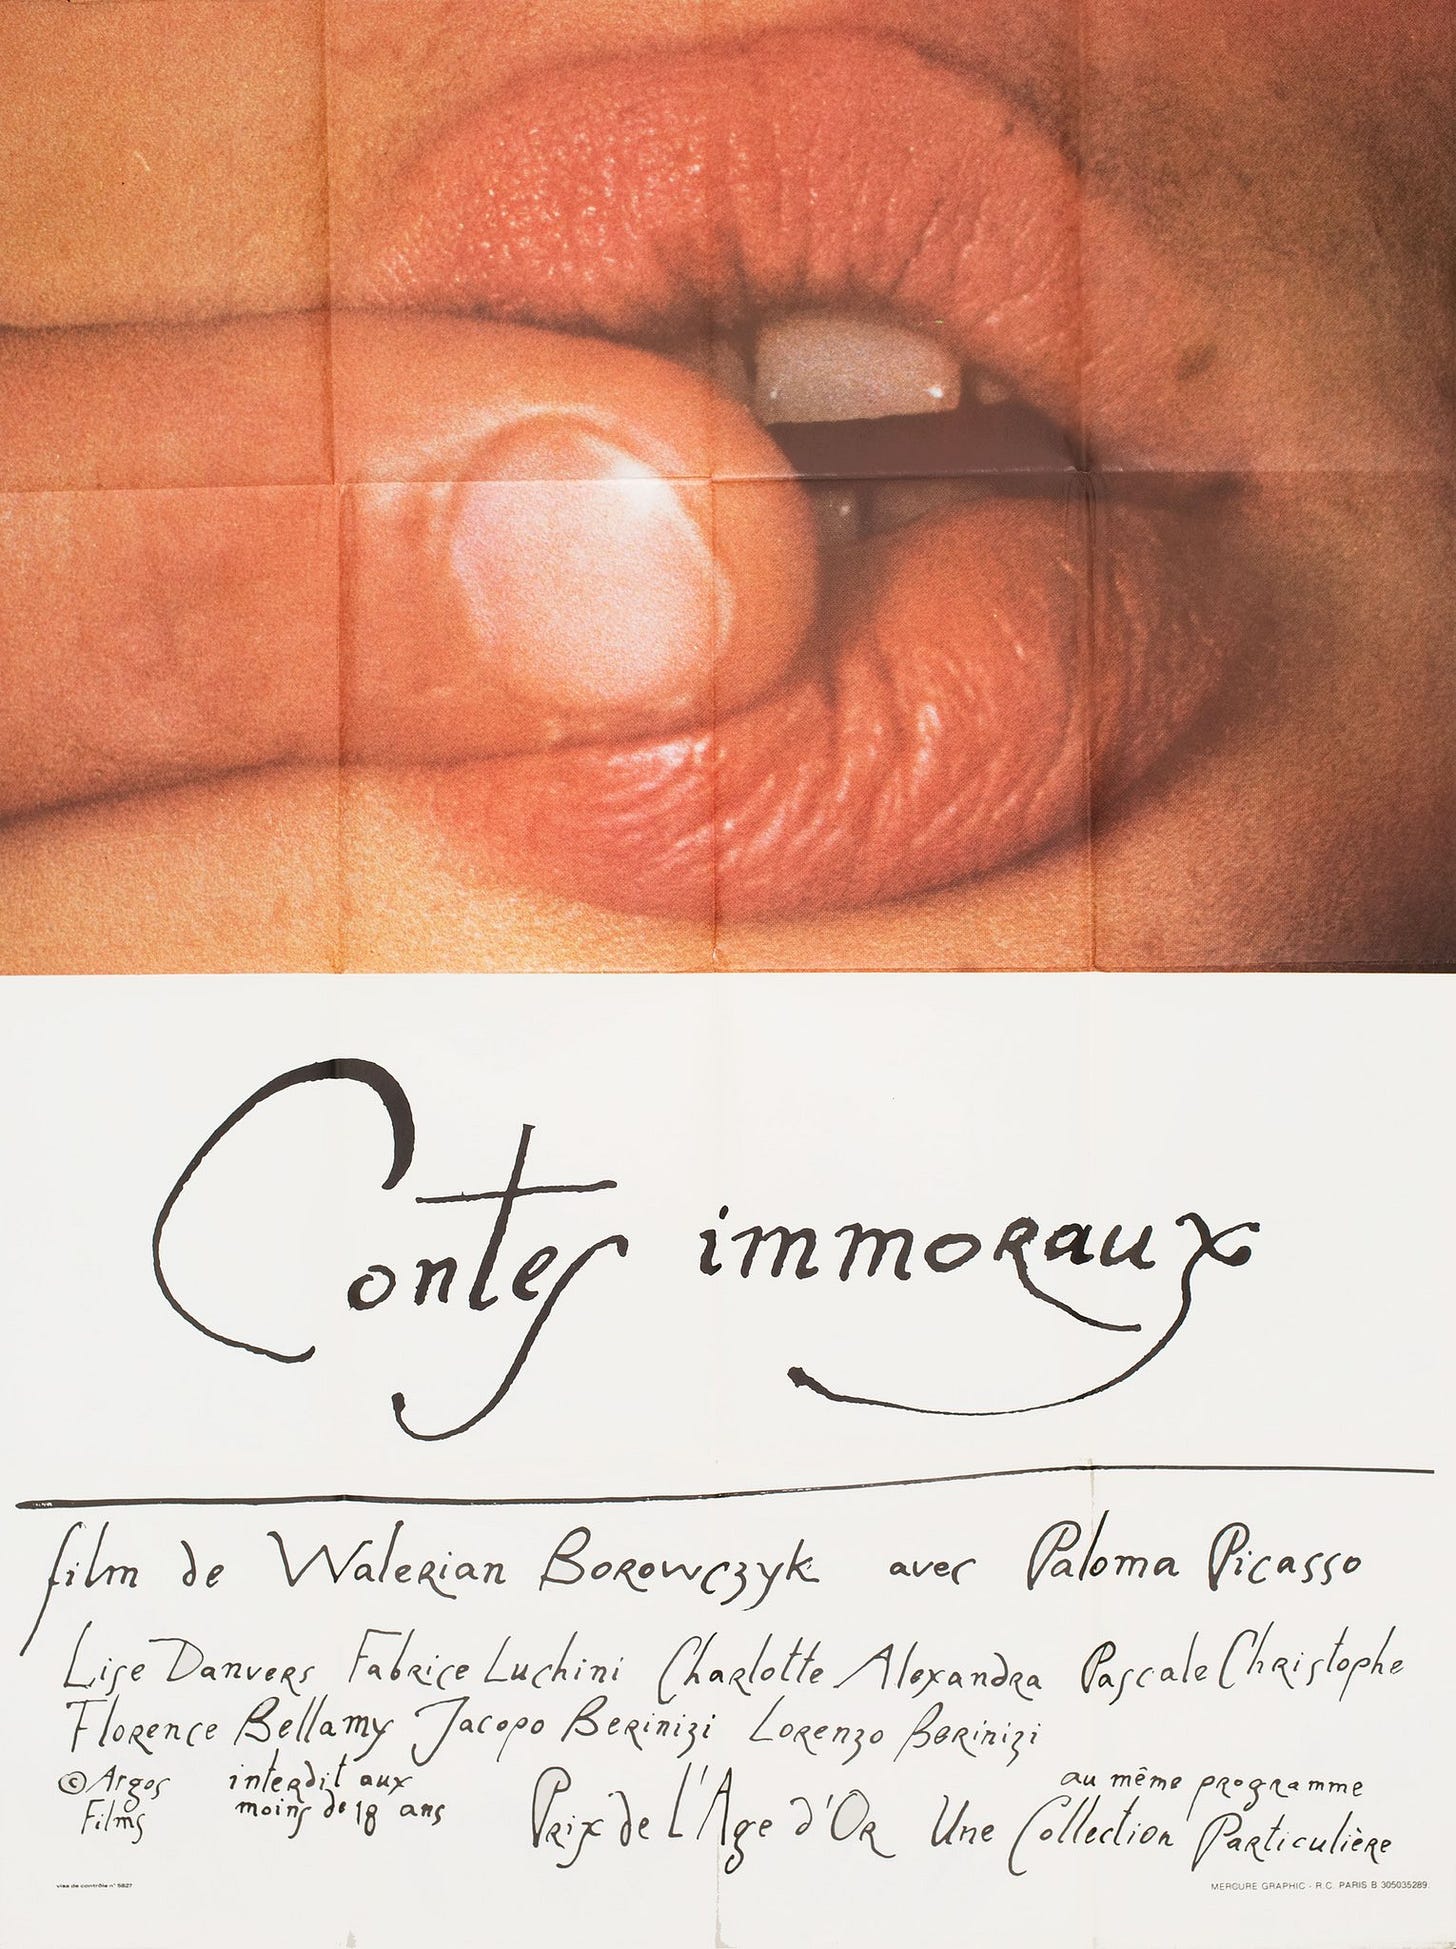 Contes immoraux
film de Walerian Borowczyk avec Paloma Picasso
Lise Danvers Fabrice Luchini Charlotte Alexandra Pascale Christophe
Florence Bellamy Jacopo Berinizi Lorenzo Berinizi
© Argos Films
interdit aux moins de 18 ans
Prix de L'Age d'Or
au même programme
Une Collection Particulière
visa de contrôle n° 5827
MERCURE GRAPHIC - R.C. PARIS B 305035289.